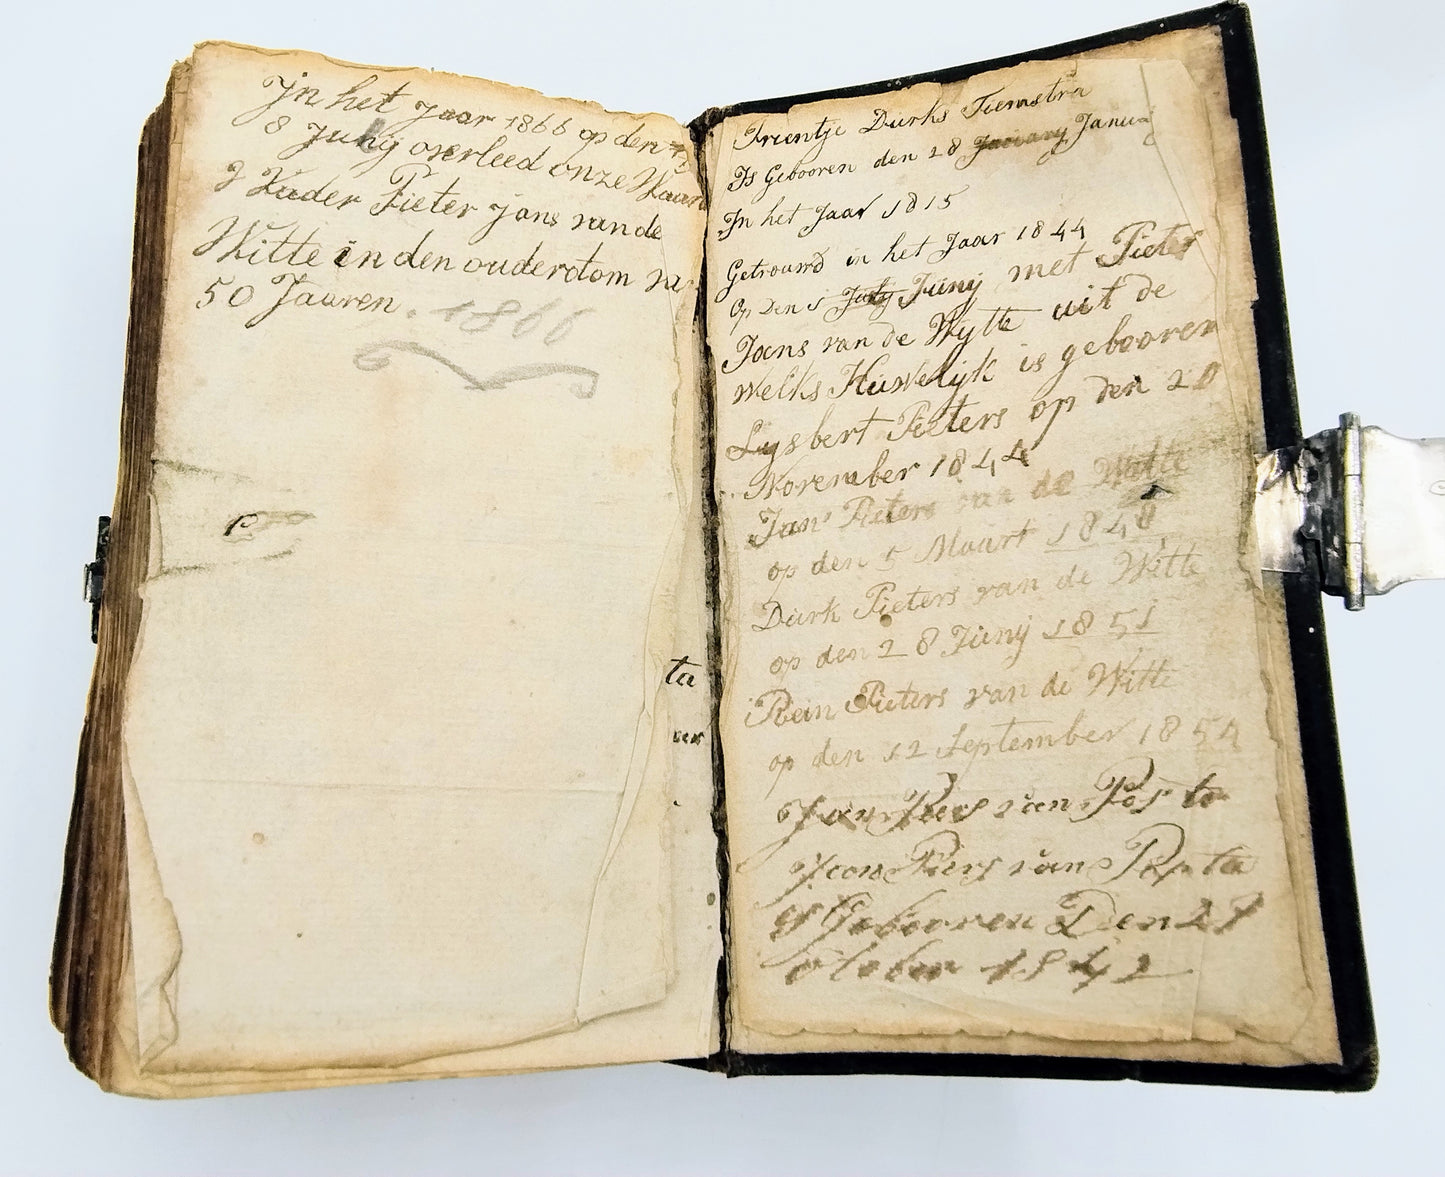 Jn het Jaar 1866 op den
8 Juny overleed onze Waard
Vader Pieter Jans van de
Witte in den ouderdom va
50 Jaaren. 1866
ta
Trientje Durks Tiemstra
Is Gebooren den 28 Janiary Janua
In het Jaar 1815
Getrouwd in het Jaar 1844
Op Den 5 July Junij met Pieter
Jans van de Wytte uit de
welks Huwelijk is gebooren
Lysbert Pieters op den 20
November 1844
Jan Pieters van de Witte
op den 5 Maart 1848
Durk Pieters van de Witte
op den 28 Junij 1851
Rein Pieters van de Witte
op den 12 September 1854
Jan Piers van Pos ta
Jan Piers van Popta
is Gebooren Den 27
October 1842